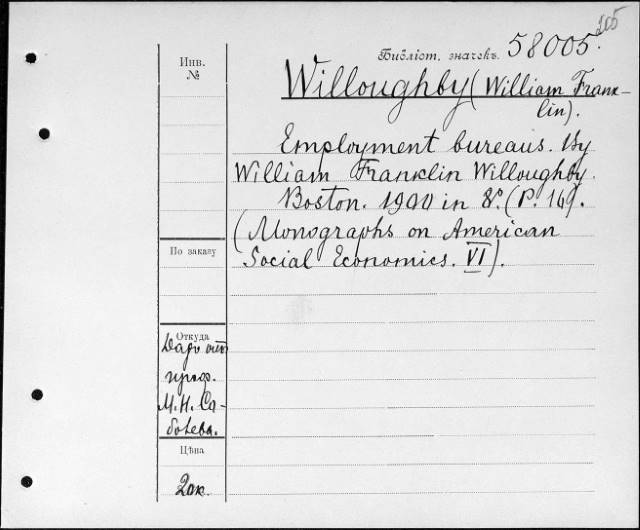 205
Библіот. значекъ 58005.
Инв.
№
Willoughby (William Frank-
lin).
Employment bureaus. By
William Franklin Willoughby.
Boston. 1900 in 8°. (P. 16).
(Monographs on American
Social Economics. VI).
По заказу
Откуда
Даръ отъ
проф.
М. Н. Со-
болева.
Цѣна
20к.